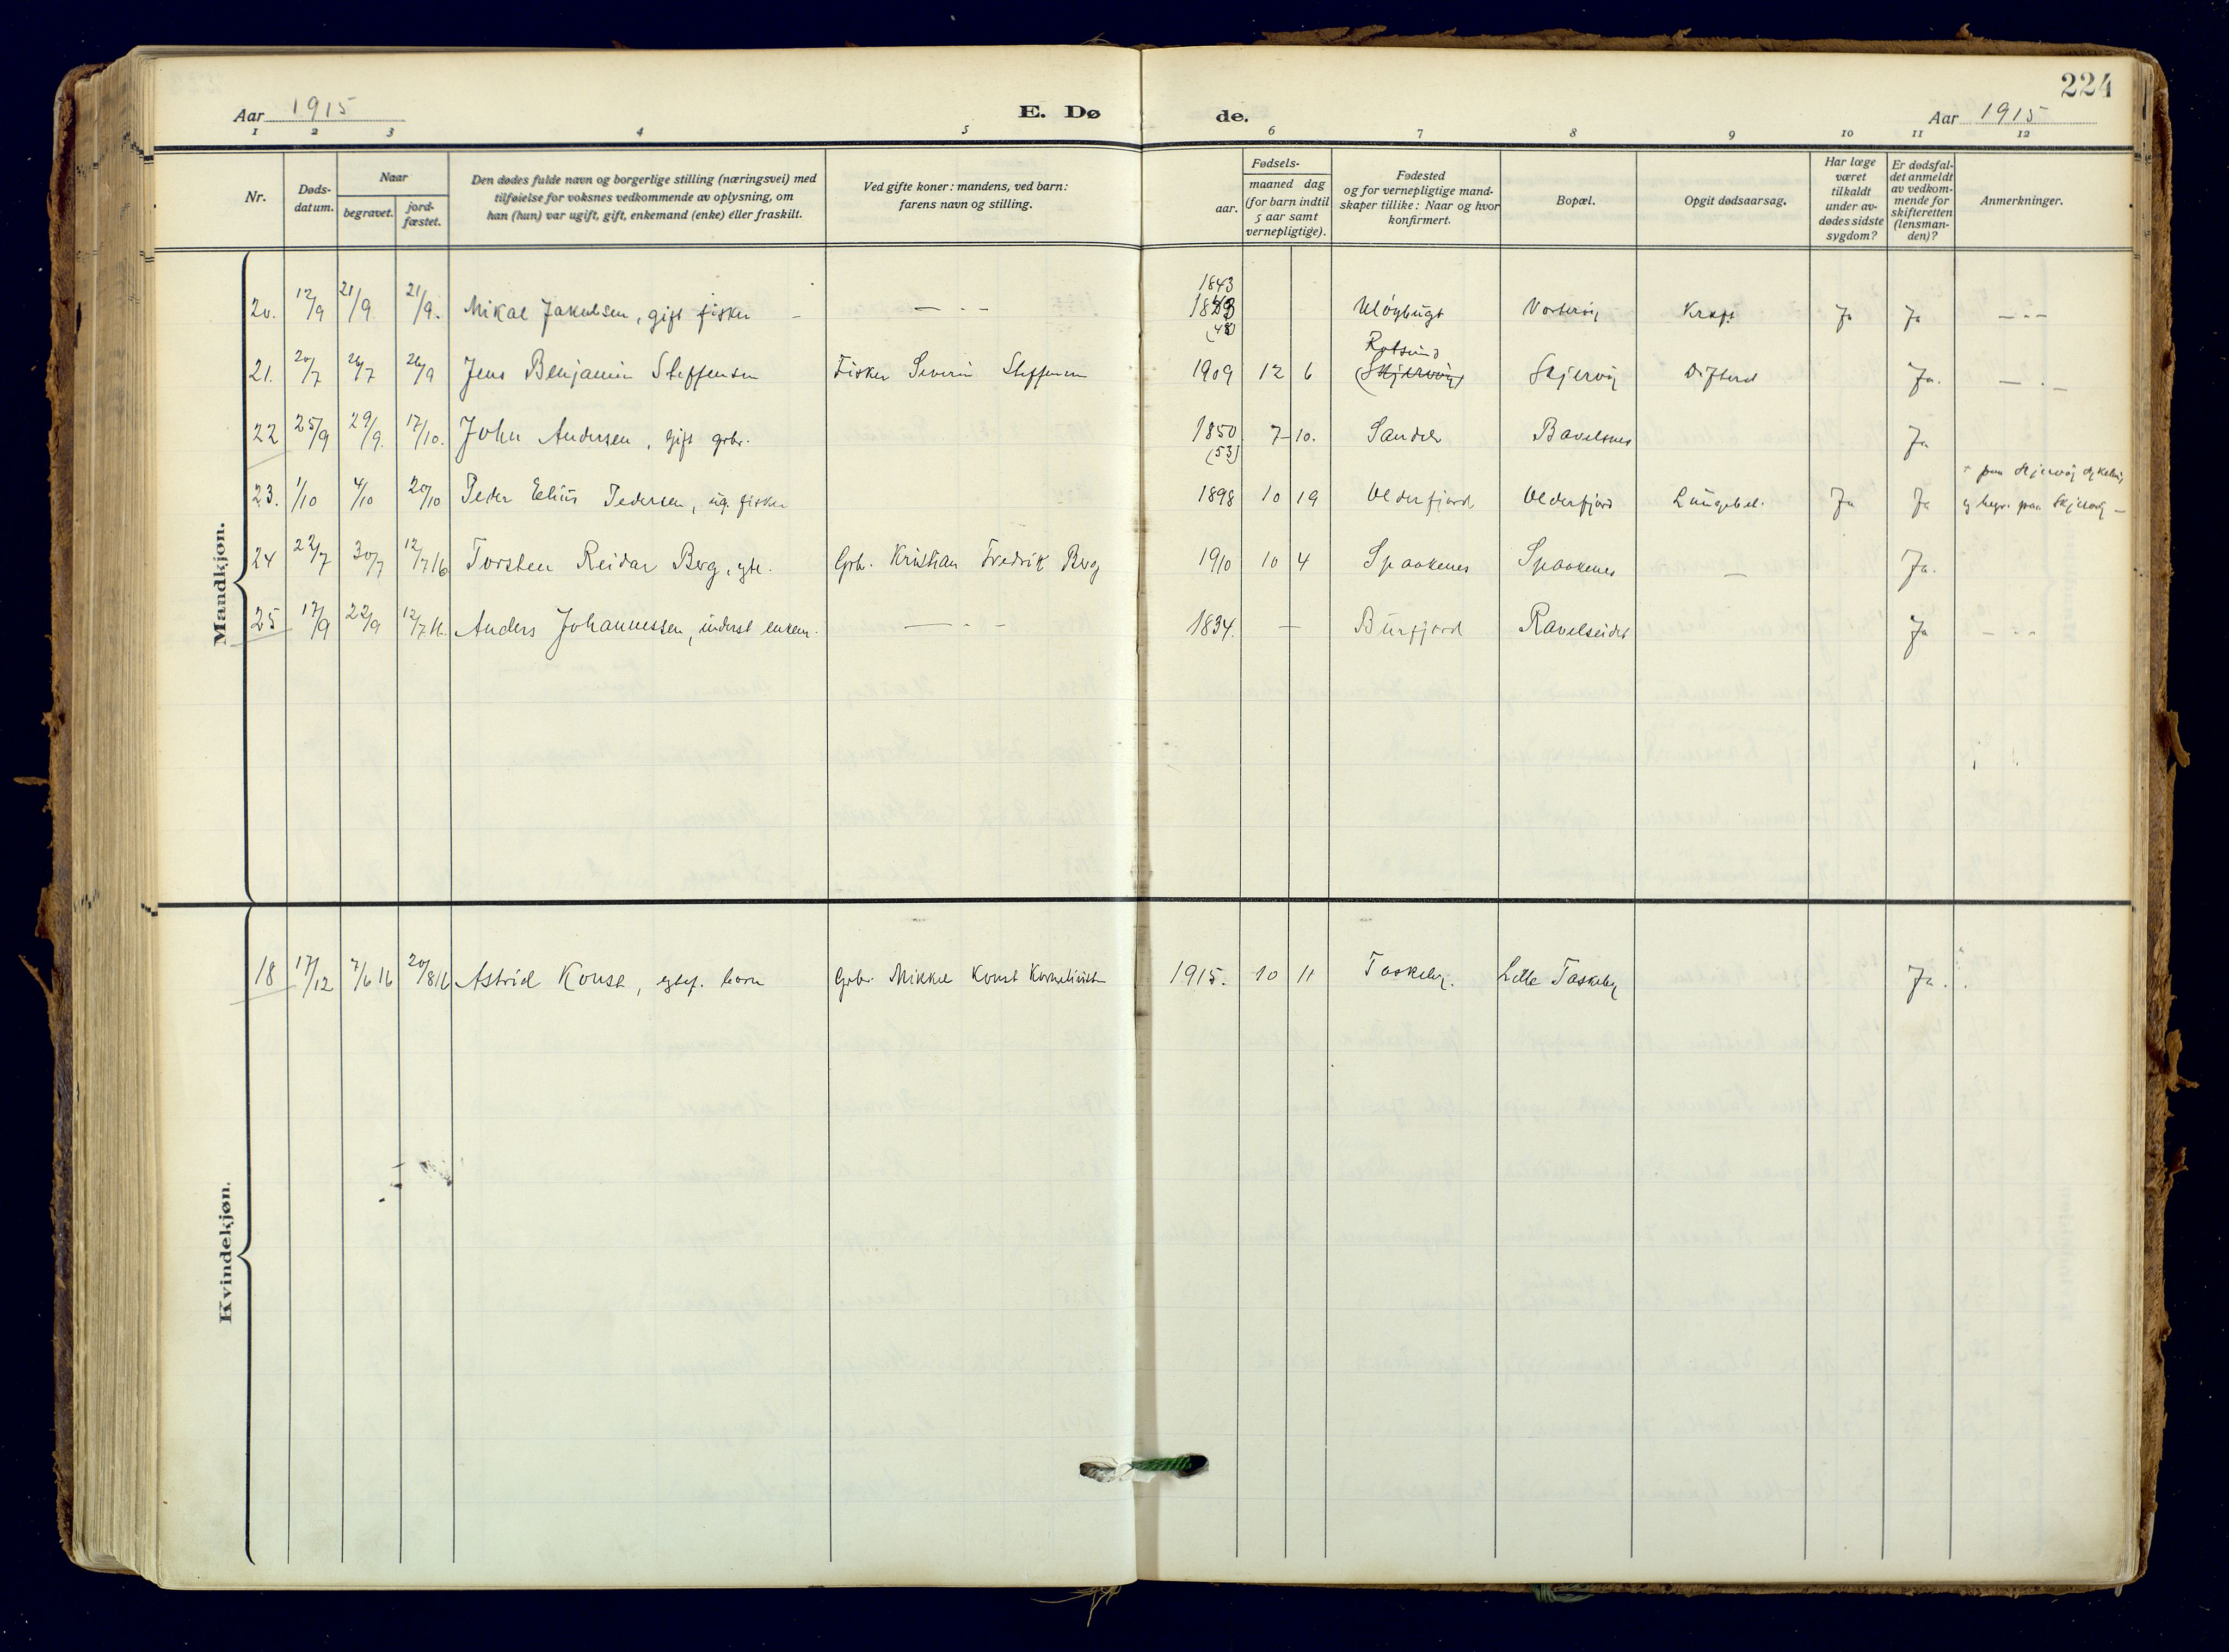 224
Aar 1915
E. Dø
de.
Aar 1915
1 2 3 4 5 6 7 8 9 10 11 12
Nr.
Døds-
datum.
Naar
begravet.
jord-
fæstet.
Den dødes fulde navn og borgerlige stilling (næringsvei) med
tilføielse for voksnes vedkommende av oplysning, om
han (hun) var ugift, gift, enkemand (enke) eller fraskilt.
Ved gifte koner: mandens, ved barn:
farens navn og stilling.
Fødsels-
aar.
maaned dag
(for barn indtil
5 aar samt
vernepligtige).
Fødested
og for vernepligtige mand-
skaper tillike: Naar og hvor
konfirmert.
Bopæl.
Opgit dødsaarsag.
Har læge
været
tilkaldt
under av-
dødes sidste
sygdom?
Er dødsfal-
det anmeldt
av vedkom-
mende for
skifteretten
(lensman-
den)?
Anmerkninger.
Mandkjøn.
1843
20. 12/9 21/9 21/9. Mikal Jakobsen, gift fisker — - - Uløybugt Vorterøy Kræft Ja Ja — - -
(43)
Rotsund
21. 20/7 26/7 26/9 Jens Benjamin Steffensen Fisker Severin Steffensen 1909 12 6 (Skjervøy) Skjervøy Difterit Ja. — - —
22 25/9 29/9. 17/10. John Andersen, gift grbr. 1850 7 - 10. Sandør Bavelsnes Ja
(53)
+ paa Skjervøy sykehus,
23. 1/10 4/10 20/10 Peder Elius Pedersen, ug. fisker 1898 10 19 Olderfjord Olderfjord Lungebet. Ja Ja og begr. paa Skjervøy —
24 22/7 30/7 12/7 16 Torsten Reidar Berg, gte. Grbr. Kristian Fredrik Berg 1910 10 4 Spaakenes Spaakenes — Ja.
25 17/9 22/9 12/7 16. Anders Johannessen, inderst enkem. — - - 1834. — Burfjord Ravelseidet Ja - - -
Kvindekjøn.
18 17/12 7/6 16 20/8 16 Astrid Konst, egtef. barn Grbr. Mikkel Konst Korneliussen 1915. 10 11 Taskeby. Lille Taskeby Ja.